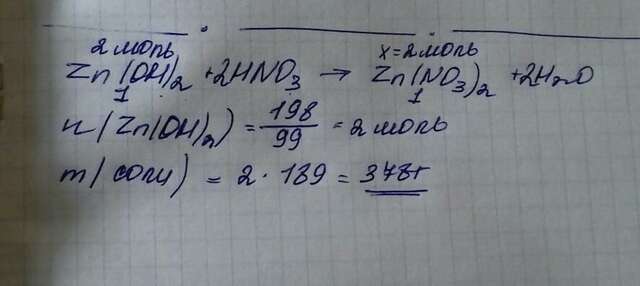 2 моль x = 2 моль
Zn(OH)2 + 2HNO3 → Zn(NO3)2 + 2H2O
1 1
n(Zn(OH)2) = 198/99 = 2 моль
m(соли) = 2 · 189 = 378г